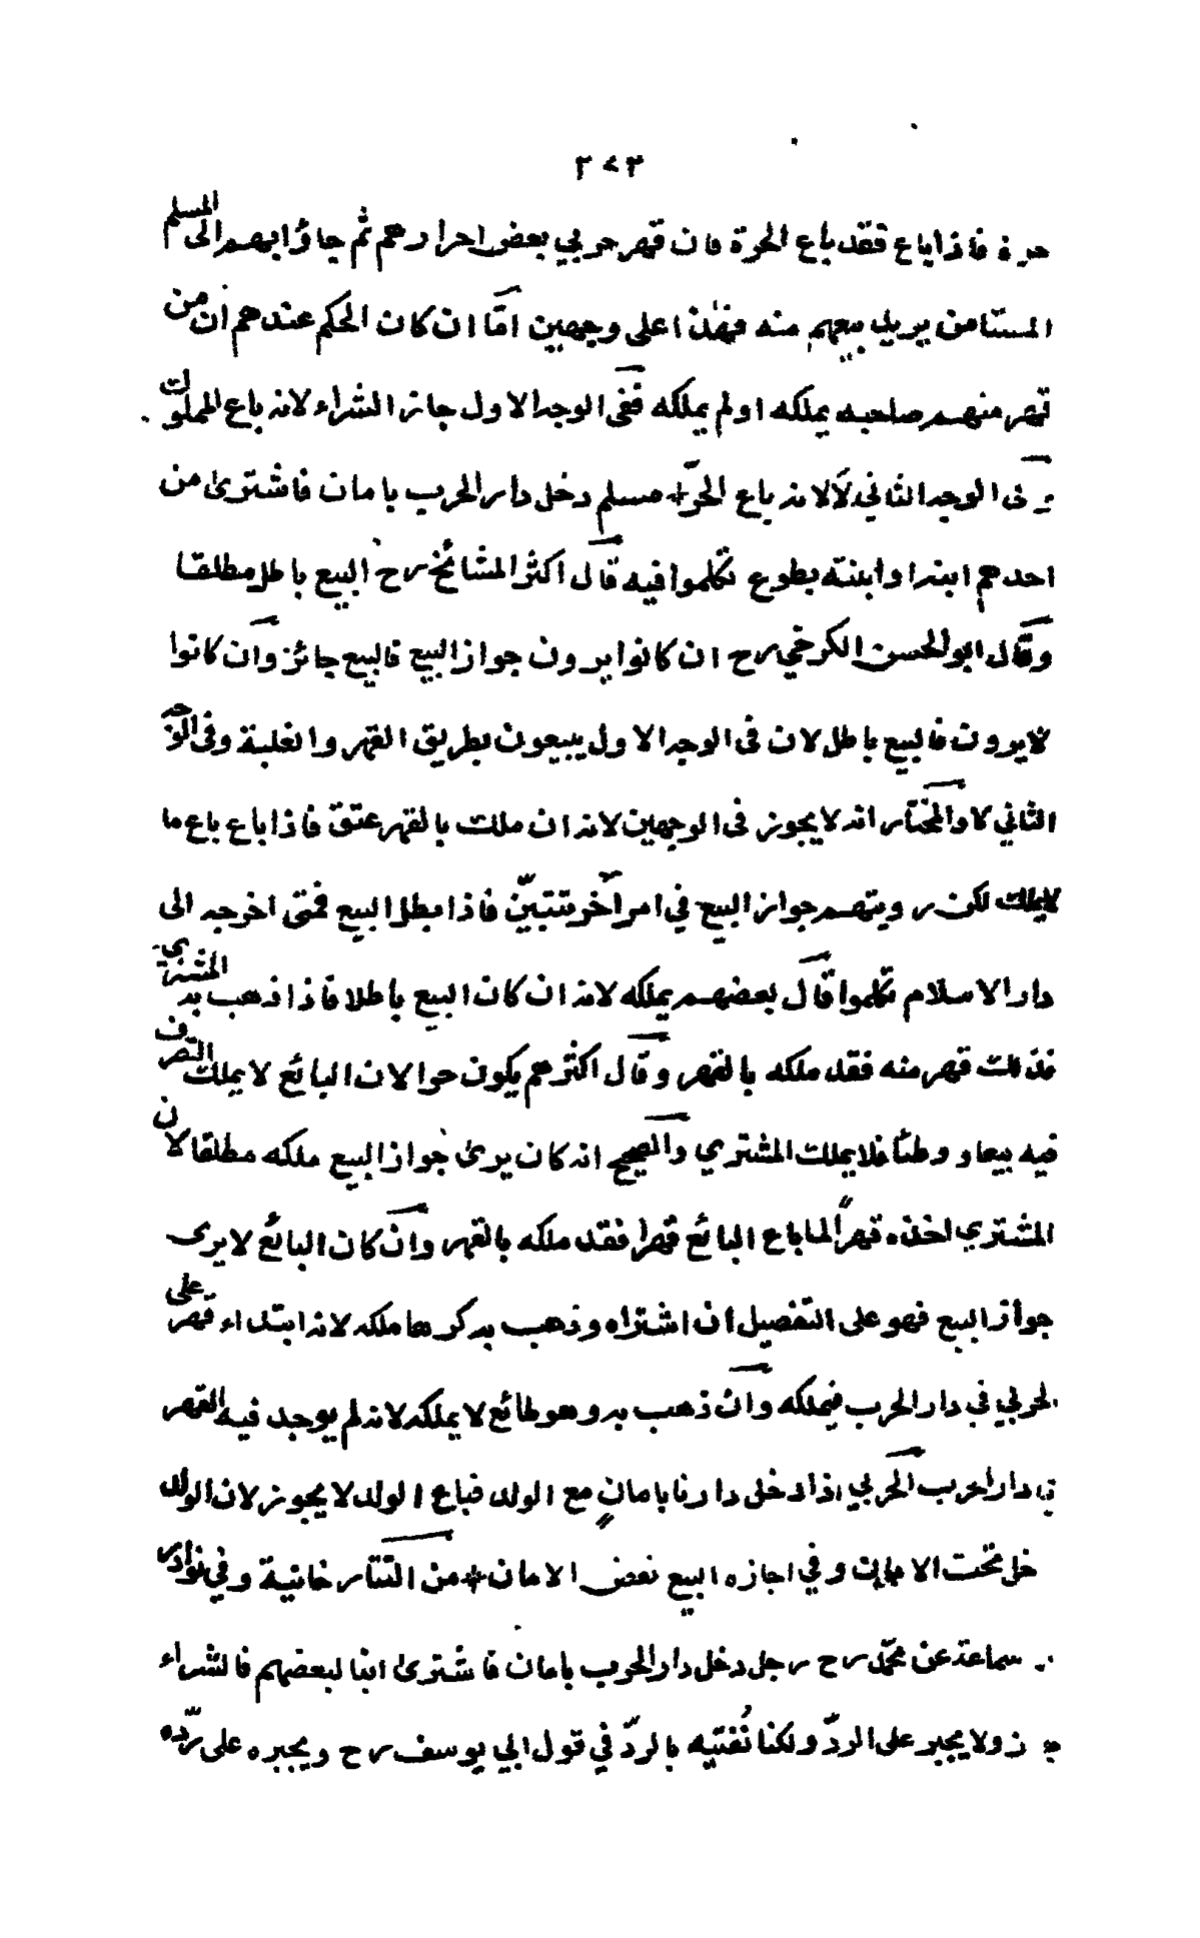 ٢٧٢
حرة فاذا باع فقد باع الحرة فان قهر حربي بعض احرارهم ثم جاؤا بهم الى المسلم
المستامن يريد بيعهم منه فهذا على وجهين امّا ان كان الحكم عندهم ان من
قهر منهم صاحبه يملكه اولم يملكه ففي الوجه الاول جاز الشراء لانه باع المملوك
وفى الوجه الثاني لا لانه باع الحرّ مسلم دخل دار الحرب بامان فاشترى من
احدهم ابنه او ابنته بطوع تكلموا فيه قال اكثر المشائخ رح البيع باطل مطلقا
وقال ابو الحسن الكرخي رح ان كانوا يرون جواز البيع فالبيع جائز وان كانوا
لا يرون فالبيع باطل لان فى الوجه الاول يبيعون بطريق القهر والغلبة وفى الوجه
الثاني لا والمختار انه لا يجوز فى الوجهين لانه ان ملك بالقهر عتق فاذا باع باع ما
لا يملك لكن رويتهم جواز البيع في امر آخر تتبيّن فاذا بطل البيع فمتى اخرجه الى
دار الاسلام تكلموا قال بعضهم يملكه لانه ان كان البيع باطلا فاذا ذهب به المشتري
فذلك قهر منه فقد ملكه بالقهر وقال اكثرهم يكون حرا لان البائع لا يملك التصرف
فيه بيعا و وطئا فلا يملك المشتري والصحيح انه كان يرى جواز البيع ملكه مطلقا لان
المشتري اخذه قهراً لما باع البائع قهرا فقد ملكه بالقهر وان كان البائع لا يرى
جواز البيع فهو على التفصيل ان اشتراه وذهب به كرها ملكه لانه ابتداء قهر على
الحربي في دار الحرب فيملكه وان ذهب به وهو طائع لا يملكه لانه لم يوجد فيه القهر
في دار الحرب الحربي اذا دخل دارنا بامان مع الولد فباع الولد لا يجوز لان الولد
دخل تحت الامان وفي اجازه البيع نقض الامان من التتارخانية وفي نوادر
ابن سماعة عن محمّد رح رجل دخل دار الحرب بامان فاشترى ابنا لبعضهم فالشراء
جائز ولا يجبر على الردّ ولكنا نُفتيه بالردّ في قول ابي يوسف رح ويجبره على ردّه